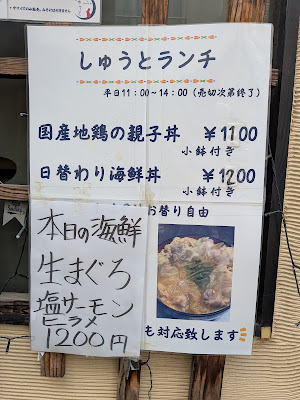 しゅうとランチ
平日11:00～14:00(売切次第終了)
国産地鶏の親子丼 ￥1100
小鉢付き
日替わり海鮮丼 ￥1200
小鉢付き
お替り自由
本日の海鮮
生まぐろ
塩サーモン
ヒラメ
1200円
も対応致します